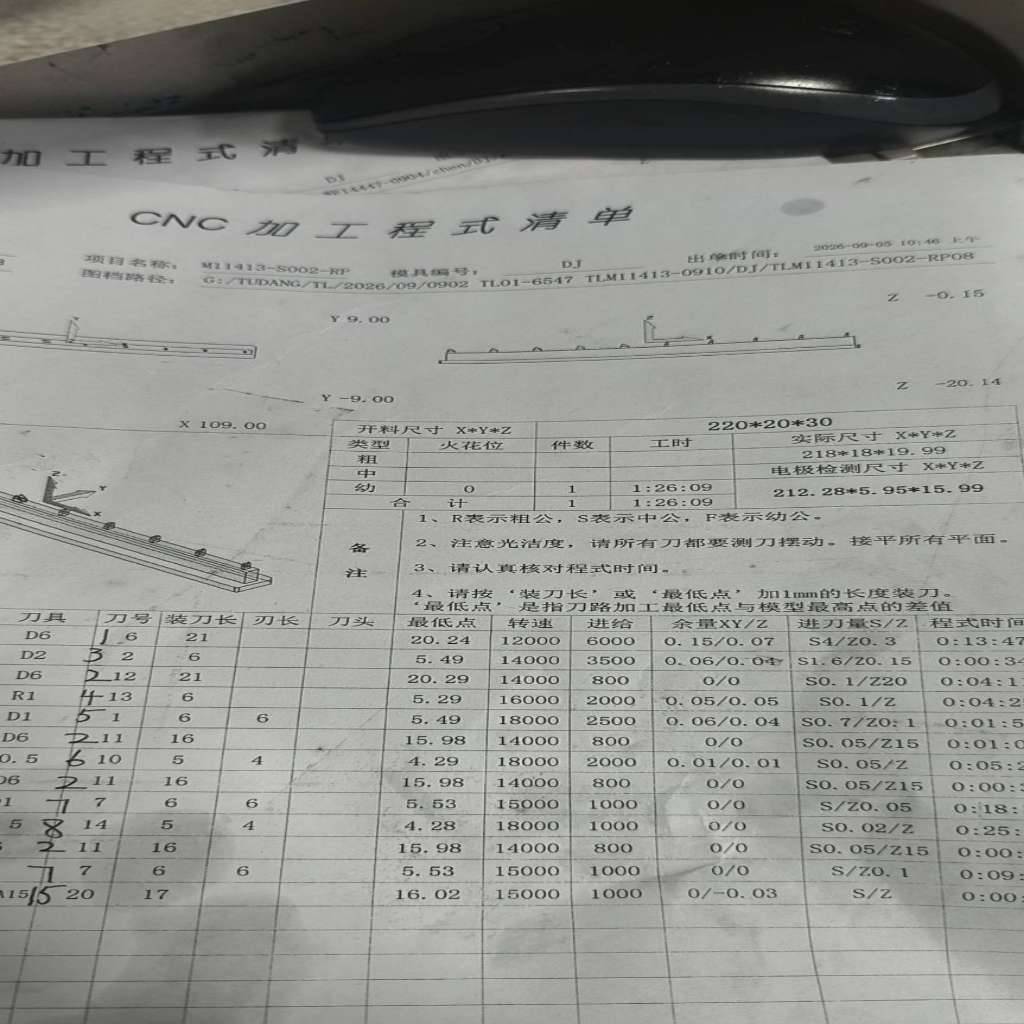 加 工 程 式 清
DJ
CNC 加 工 程 式 清 单
项目名称: M11413-S002-RP 模具编号: DJ 出单时间: 2026-09-05 10:46 上午
图档路径: G:/TUDANG/TL/2026/09/0902 TL01-6547 TLM11413-0910/DJ/TLM11413-S002-RP08
Y 9.00
Z -0.15
Y -9.00
Z -20.14
X 109.00
Z
Y
X
开料尺寸 X*Y*Z 220*20*30
类型 火花位 件数 工时 实际尺寸 X*Y*Z
粗 218*18*19.99
中 电极检测尺寸 X*Y*Z
幼 0 1 1:26:09 212.28*5.95*15.99
合 计 1 1:26:09
备注
1、R表示粗公,S表示中公,F表示幼公。
2、注意光洁度,请所有刀都要测刀摆动。接平所有平面。
3、请认真核对程式时间。
4、请按‘装刀长’或‘最低点’加1mm的长度装刀。
‘最低点’是指刀路加工最低点与模型最高点的差值
刀具 刀号 装刀长 刃长 刀头 最低点 转速 进给 余量XY/Z 进刀量S/Z 程式时间
D6 1 6 21 20.24 12000 6000 0.15/0.07 S4/Z0.3 0:13:47
D2 3 2 6 5.49 14000 3500 0.06/0.04 S1.6/Z0.15 0:00:34
D6 2 12 21 20.29 14000 800 0/0 S0.1/Z20 0:04:1
R1 4 13 6 5.29 16000 2000 0.05/0.05 S0.1/Z 0:04:2
D1 5 1 6 6 5.49 18000 2500 0.06/0.04 S0.7/Z0.1 0:01:5
D6 2 11 16 15.98 14000 800 0/0 S0.05/Z15 0:01:0
0.5 6 10 5 4 4.29 18000 2000 0.01/0.01 S0.05/Z 0:05:2
D6 2 11 16 15.98 14000 800 0/0 S0.05/Z15 0:00:
1 7 7 6 6 5.53 15000 1000 0/0 S/Z0.05 0:18:
5 8 14 5 4 4.28 18000 1000 0/0 S0.02/Z 0:25:
2 11 16 15.98 14000 800 0/0 S0.05/Z15 0:00:
7 7 6 6 5.53 15000 1000 0/0 S/Z0.1 0:09:
A15 15 20 17 16.02 15000 1000 0/-0.03 S/Z 0:00: